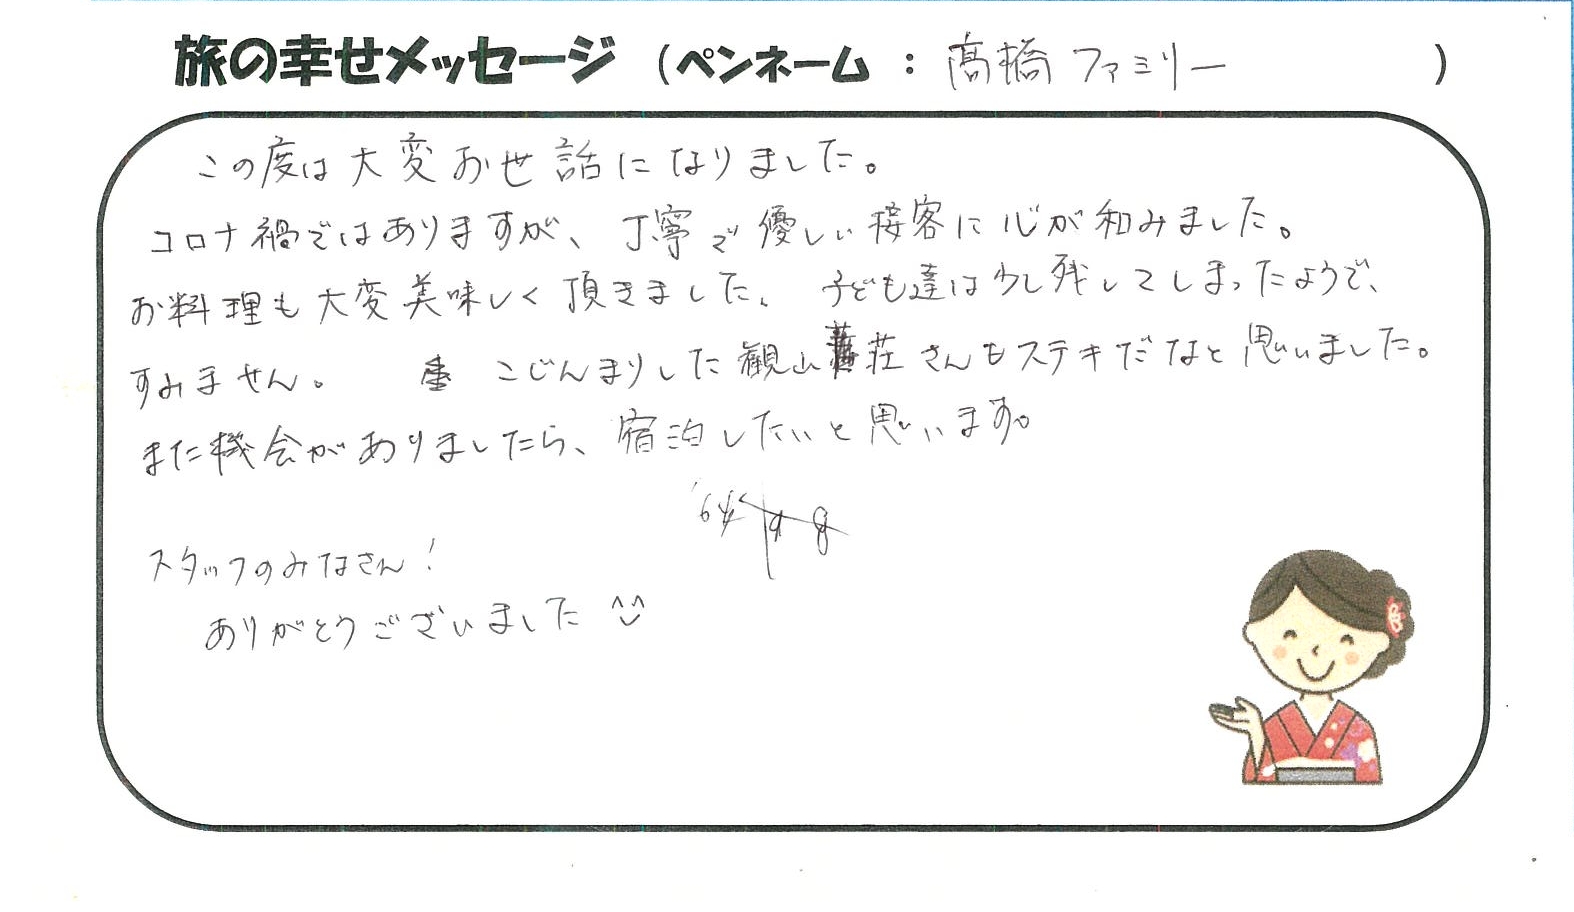 旅の幸せメッセージ (ペンネーム : 髙橋ファミリー )
この度は大変お世話になりました。
コロナ禍ではありますが、丁寧で優しい接客に心が和みました。
お料理も大変美味しく頂きました。子ども達は少し残してしまったようで、
すみません。 こじんまりした観山荘さんもステキだなと思いました。
また機会がありましたら、宿泊したいと思います。
スタッフのみなさん!
ありがとうございました ^^